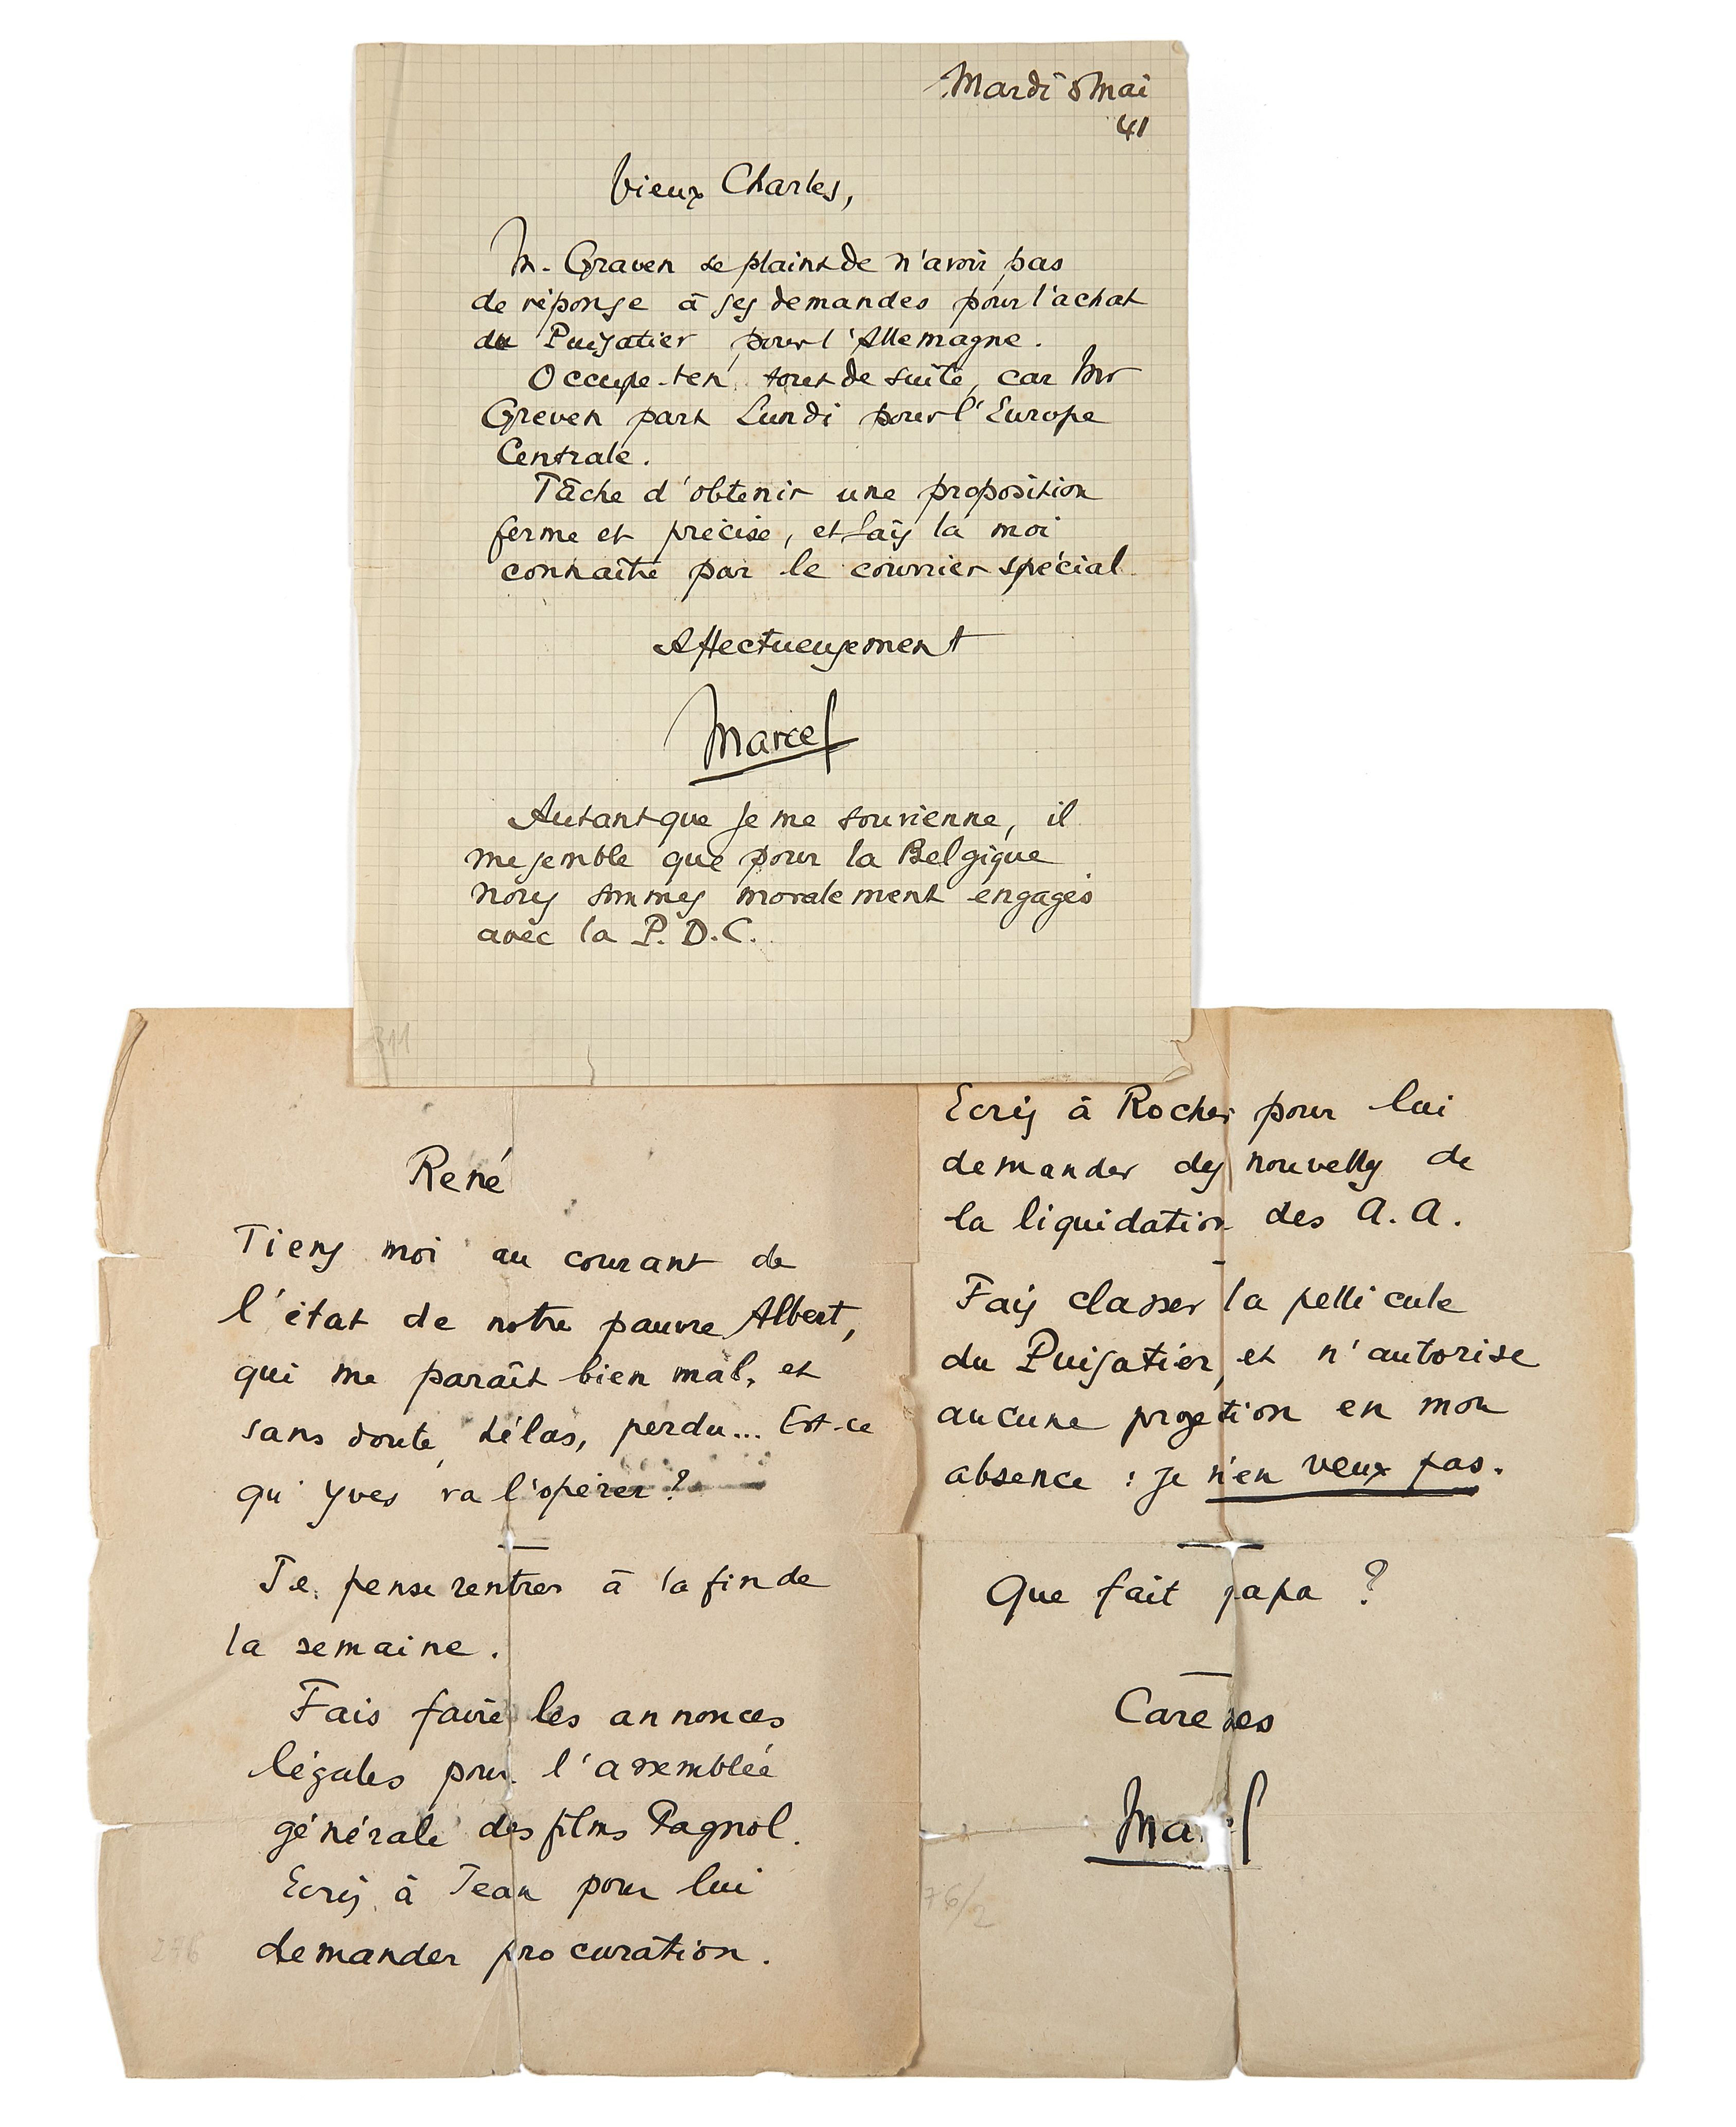 Mardi 8 Mai
41
Vieux Charles,
M. Graven se plaint de n'avoir pas
de réponse à ses demandes pour l'achat
du Puisatier pour l'Allemagne.
Occupe-t'en tout de suite, car Mr
Greven part Lundi pour l'Europe
Centrale.
Tâche d'obtenir une proposition
ferme et précise, et fais la moi
connaître par le courrier spécial
Affectueusement
Marcel
Autant que je me souvienne, il
me semble que pour la Belgique
nous sommes moralement engagés
avec la P.D.C.
311
René
Tiens moi au courant de
l'état de notre pauvre Albert,
qui me paraît bien mal, et
sans doute, hélas, perdu... Est-ce
qu'Yves va l'opérer?
Je pense rentrer à la fin de
la semaine.
Fais faire les annonces
légales pour l'assemblée
générale des films Pagnol.
Ecris à Jean pour lui
demander procuration.
276
Ecris à Rocher pour lui
demander des nouvelles de
la liquidation des A.A.
Fais classer la pellicule
du Puisatier, et n'autorise
aucune projetion en mon
absence : je n'en veux pas.
Que fait papa ?
Caresses
Ma l
76/2